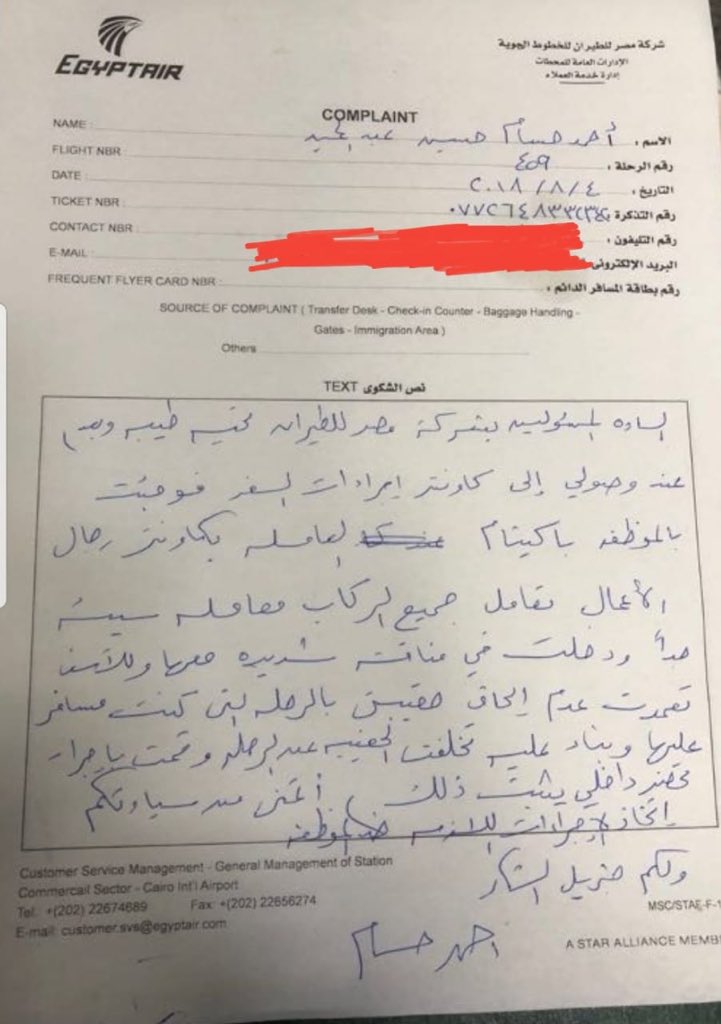 EGYPTAIR
شركة مصر للطيران للخطوط الجوية
الإدارات العامة للمحطات
إدارة خدمة العملاء
COMPLAINT
NAME : أحمد حسام حسين عبد : الاسم
FLIGHT NBR ٤٥٩ : رقم الرحلة
DATE : ٢٠١٨/٨/٤ : التاريخ
TICKET NBR : رقم التذكرة
CONTACT NBR : رقم التليفون :
E-MAIL : البريد الإلكترونى
FREQUENT FLYER CARD NBR : رقم بطاقة المسافر الدائم :
SOURCE OF COMPLAINT ( Transfer Desk - Check-in Counter - Baggage Handling -
Gates - Immigration Area )
Others
TEXT نص الشكوى
الساده المسئولين بشركة مصر للطيران تحيه طيبه وبعد
عند وصولي إلى كاونتر إجراءات السفر فوجئت
بالموظفه العامله بكاونتر رجال
الأعمال تعامل جميع الركاب معامله سيئه
جداً ودخلت في مناقشه شديده معها وللأسف
تعمدت عدم إلحاق حقيبتى بالرحله التى كنت مسافر
عليها وبناء عليه تخلفت الحقيبه عن الرحله وقمت بإجراء
محضر داخلي يثبت ذلك أتمنى من سيادتكم
إتخاذ الإجراءات اللازمه ضد الموظفه
ولكم جزيل الشكر
احمد حسام
Customer Service Management - General Management of Station
Commercail Sector - Cairo Int'l Airport
Tel: +(202) 22674689 Fax: +(202) 22656274
E-mail: customer.svs@egyptair.com
MSC/STAE-F-1
A STAR ALLIANCE MEMB